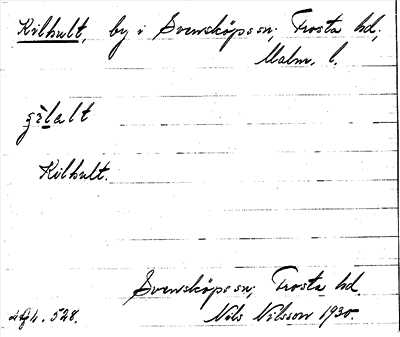 Kilhult, by i Svensköps sn; Frosta hd,
Malm. l.
Kilhult.
Svensköps sn; Frosta hd.
Nils Nilsson 1930.